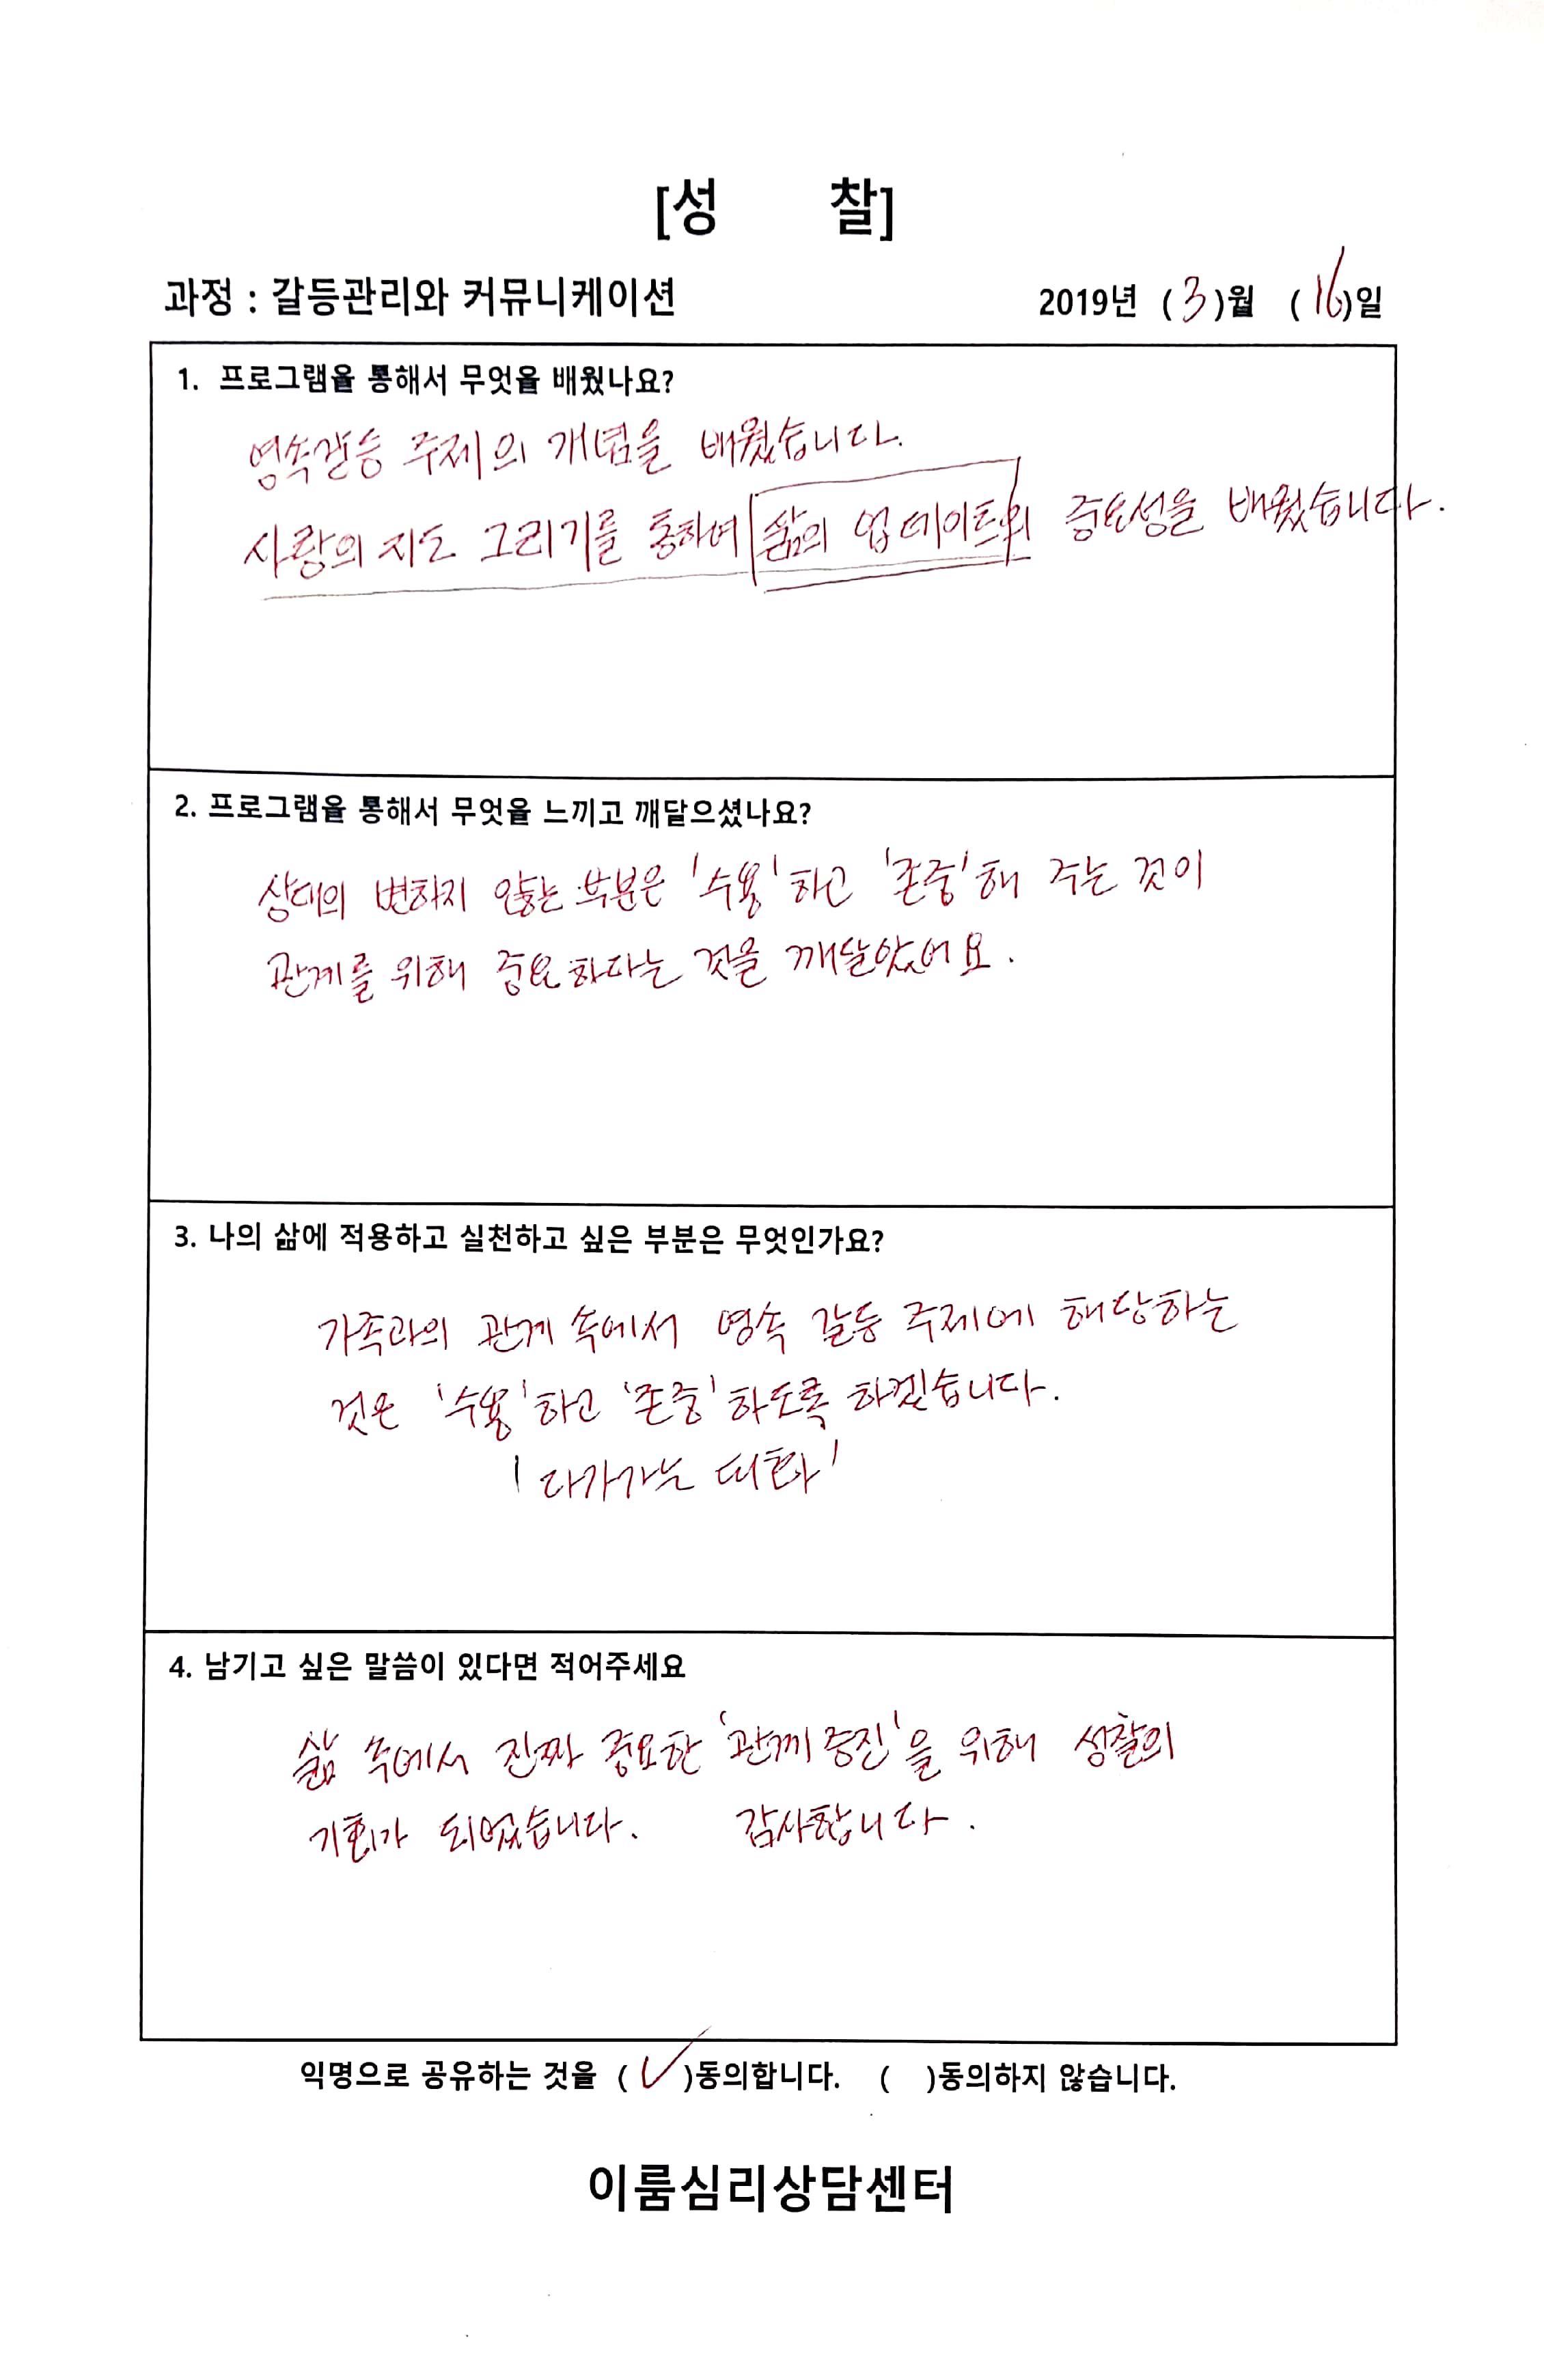 [성 찰]
과정 : 갈등관리와 커뮤니케이션 2019년 (3)월 (16)일
1. 프로그램을 통해서 무엇을 배웠나요?
영속갈등 주제의 개념을 배웠습니다.
사랑의 지도 그리기를 통하여 삶의 업데이트의 중요성을 배웠습니다.
2. 프로그램을 통해서 무엇을 느끼고 깨달으셨나요?
상대의 변하지 않는 부분은 '수용'하고 '존중'해 주는 것이
관계를 위해 중요하다는 것을 깨달았어요.
3. 나의 삶에 적용하고 실천하고 싶은 부분은 무엇인가요?
가족과의 관계 속에서 영속 갈등 주제에 해당하는
것은 '수용'하고 '존중'하도록 하겠습니다.
'다가가는 대화'
4. 남기고 싶은 말씀이 있다면 적어주세요
삶 속에서 진짜 중요한 '관계 증진'을 위해 성찰의
기회가 되었습니다. 감사합니다.
익명으로 공유하는 것을 (✓)동의합니다. ( )동의하지 않습니다.
이룸심리상담센터